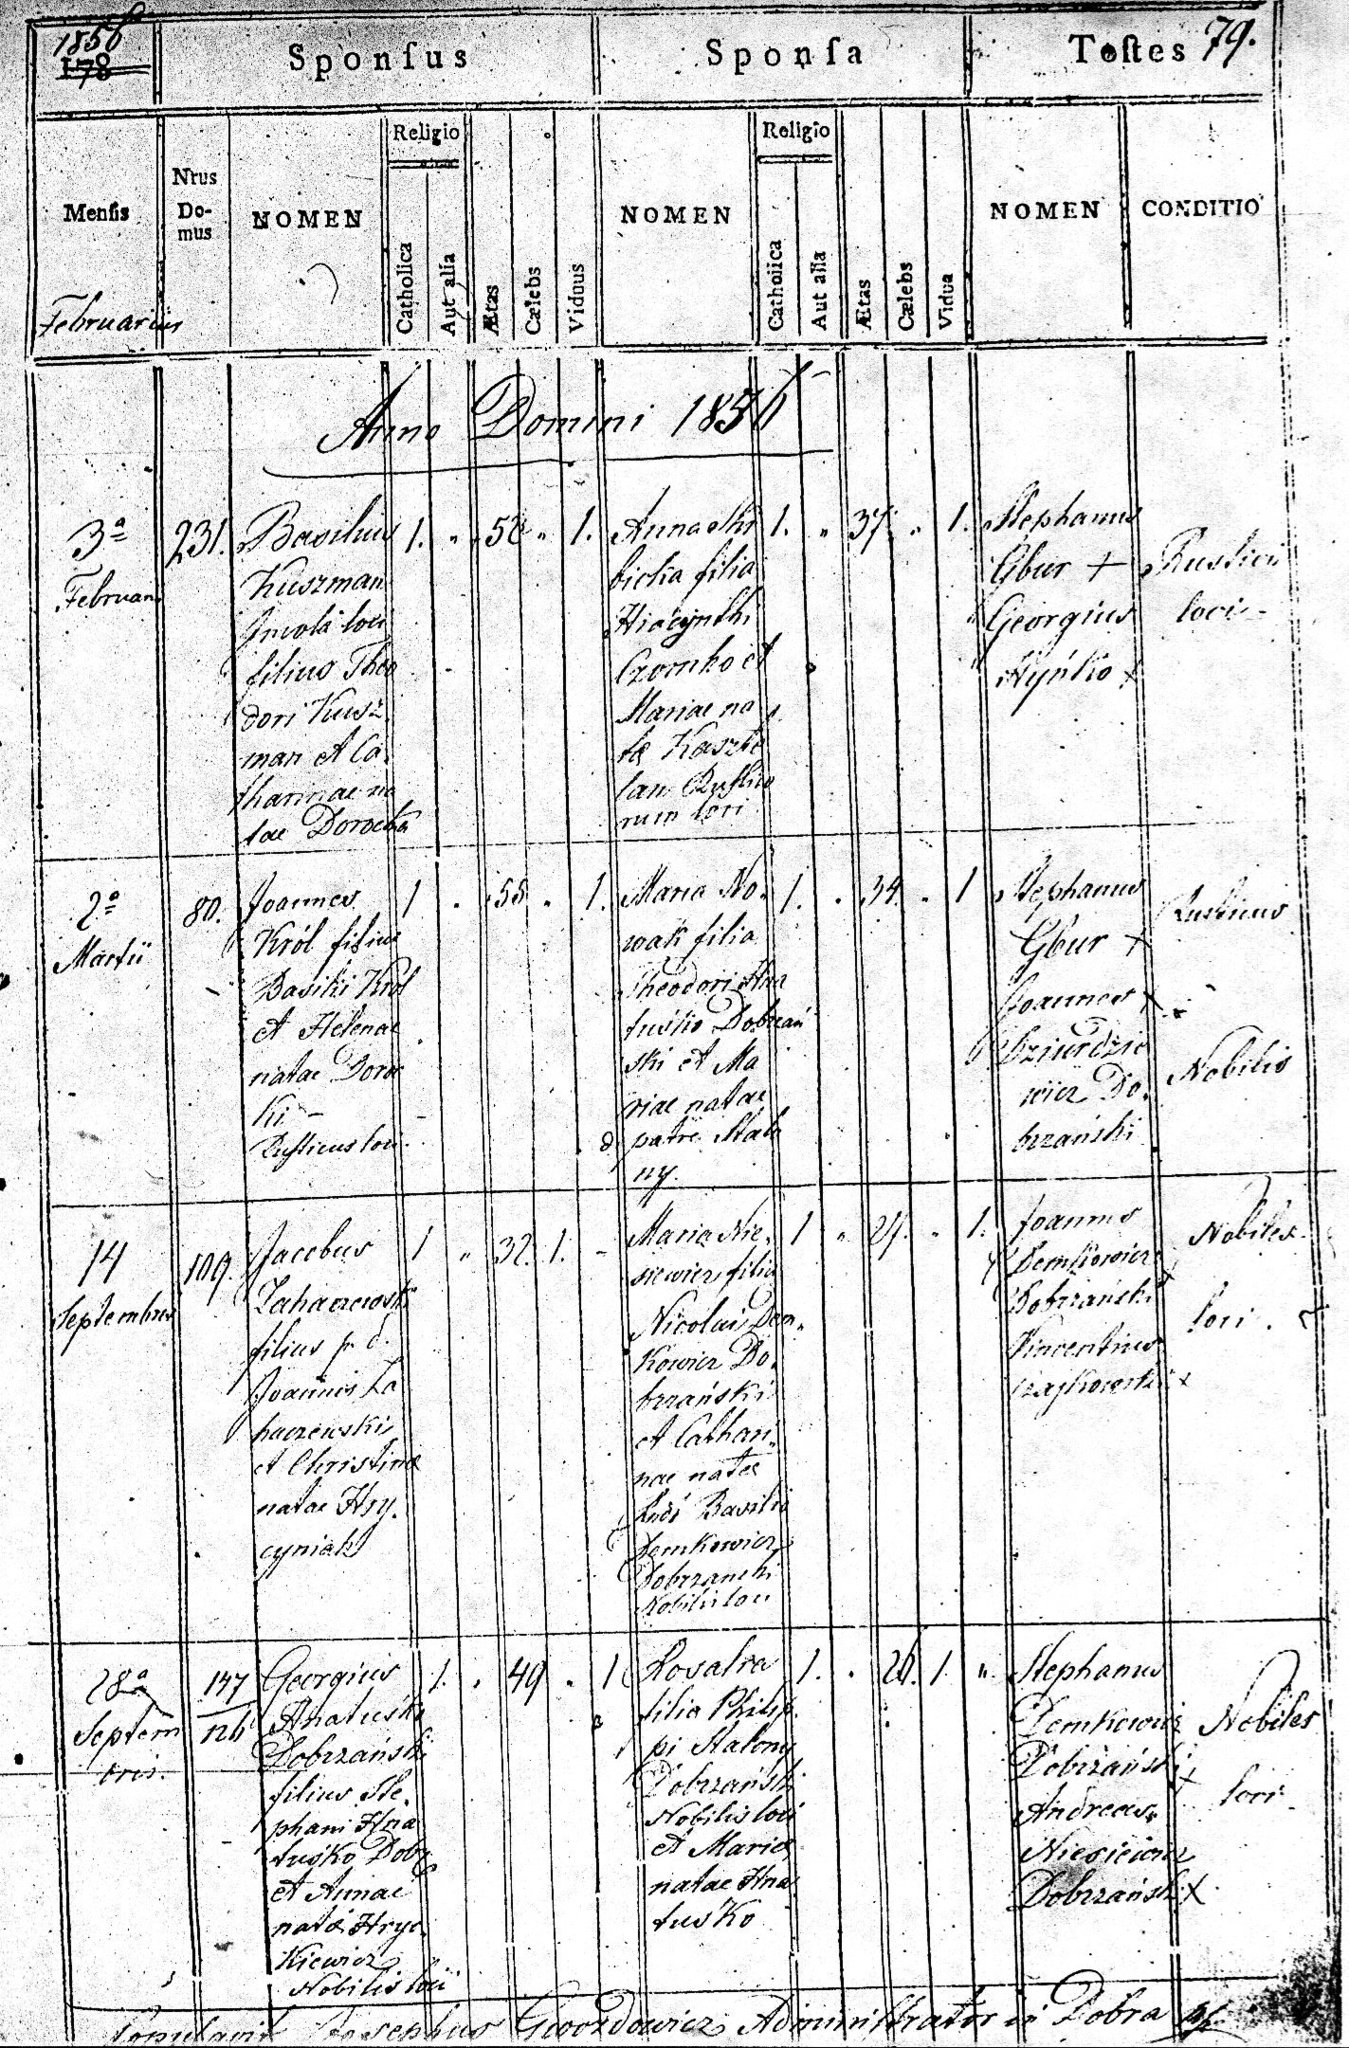 1856
178
Sponſus
Sponſa
Teſtes 79.
Menſis
Nrus
Do-
mus
NOMEN
Religio
Catholica
Aut alia
Ætas
Cælebs
Viduus
NOMEN
Religio
Catholica
Aut alia
Ætas
Cælebs
Vidua
NOMEN
CONDITIO
Februarius
Anno Domini 1856
3ª
Februari
231.
Basilius
Kuszman
Incola loci
filius Theo
dori Kusz
man et Ca,
tharinae na
tae Dorocka
1. " 58 " 1.
Anna
bicka filia
Hiacynthi
Czomko et
Mariae na
ta Kaszte
lan Rustico
rum loci
1. " 37. " 1.
Stephanus
Gbur +
Georgius
Hyńko +
Rustici
loci
2ª
Martii
80.
Joannes
Król filius
Basilii Król
et Helenae
natae Doroc
ki -
Rusticus loci
1 " 55 " 1.
Maria No-
wak filia
Theodori Hna
tuśko Dobrzań
ski et Ma
riae natae
patre Stato
ny.
1. " 34. " 1
Stephanus
Gbur +
Joannes +
Dziurdzie
wicz Do.
brzański
Rusticus
Nobilis
14
Septembris
109.
Jacobus
Zahaczewski
filius p. d.
Joannis Za
haczewski
et Christinae
natae Hry,
cyniak
1 " 32. 1. -
Maria Nie-
siewicz filia
Nicolai Dem,
kowicz Do,
brzański
et Cathari,
nae natae
Basilio
Demkowicz
Dobrzanski
Nobilis loci
1 " 24. " 1.
Joannes
Demkowicz
Dobrzański +
Vincentius
Czajkowski +
Nobiles
loci.
28ª
Septem
bris.
147
126
Georgius
Hnatuśko
Dobrzański
filius Ste,
phani Hna
tuśko Dobrz
et Annae
natae Hryc,
kiewicz
Nobilis loci
1. " 49 " 1
Rosalia
filia Philip,
pi Statony
Dobrzański
Nobilis loci
et Mariae
natae Hna
tuśko
1. " 26. 1. "
Stephanus
Demkowicz
Dobrzański +
Andreas
Niesiewicz
Dobrzański +
Nobiles
loci
Copulavit Josephus Gwozdowicz Administrator in Dobra